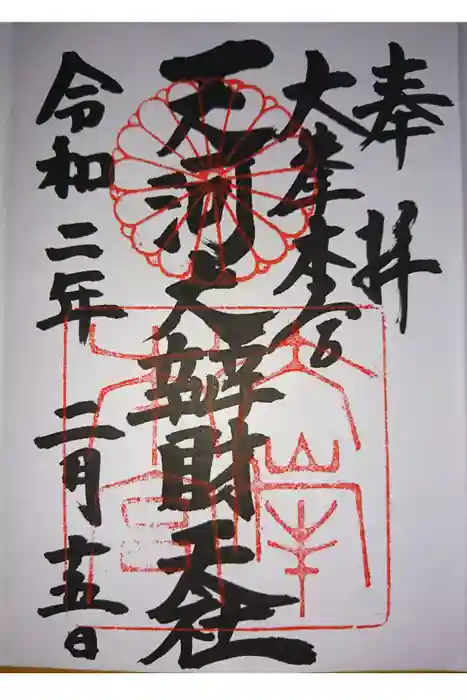 奉拝
大峯本宮
天河大辨財天社
令和二年二月十五日
大峯本宮